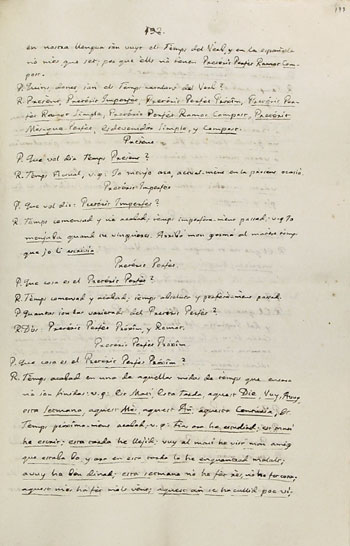 192.
en nostra llengua son vuyt els Temps del Verb, y en la española
no més que set; per que ells no tenen Preterit Perfet Remot Com-
post.
P. Quins donchs son els Temps del Verb?
R. Present, Preterit Imperfet, Preterit Perfet Proxim, Preterit Per-
fet Remot Simple, Preterit Perfet Remot Compost, Preterit
Mesque Perfet, Esdevenidor Simple, y Compost.
Present
P. Qué vol dir Temps Present?
R. Temps Actual, v.g. Yo menjo ara, actual-ment en la present ocasió.
Preterit Imperfet
P. Que vol dir: Preterit Imperfet?
R. Temps comensad y no acabad; temps imperfeta-ment passad; v.g. Yo
menjaba quand tu vingueres. Arribá mon germá al mateix temps
que jo li escribia
Preterit Perfet.
P. Que cosa es el Preterit Perfet?
R. Temps comensad y acabad; temps absolut y perfeta-ment passad.
P. Quantas son las varietats del Preterit Perfet?
R. Dos: Preterit Perfet Proxim, y Remot.
Preterit Perfet Próxim
P. Que cosa es el Preterit Perfet Próxim?
R. Temps acabad en una de aquellas midas de temps que encara
no son finidas: v.g: Est Matí, Esta Tarda, aquest Dia, Vuy, Avuy
esta semana, aquest Mes, aquest Añ, aquesta Centuria, &
Temps próxima-ment acabad; v.g: Fins ara he estudiad; est matí
he escrit; esta tarda he llegid; vuy al matí he vist mon amig
que estaba bo, y ara en esta tarda lo he encontrad malalt;
avuy ha ben dinad; esta semana no ha fet res, ni ha fet cosa;
aquest mes ha fet mals vents; aquest añ se ha cullid poc vi;